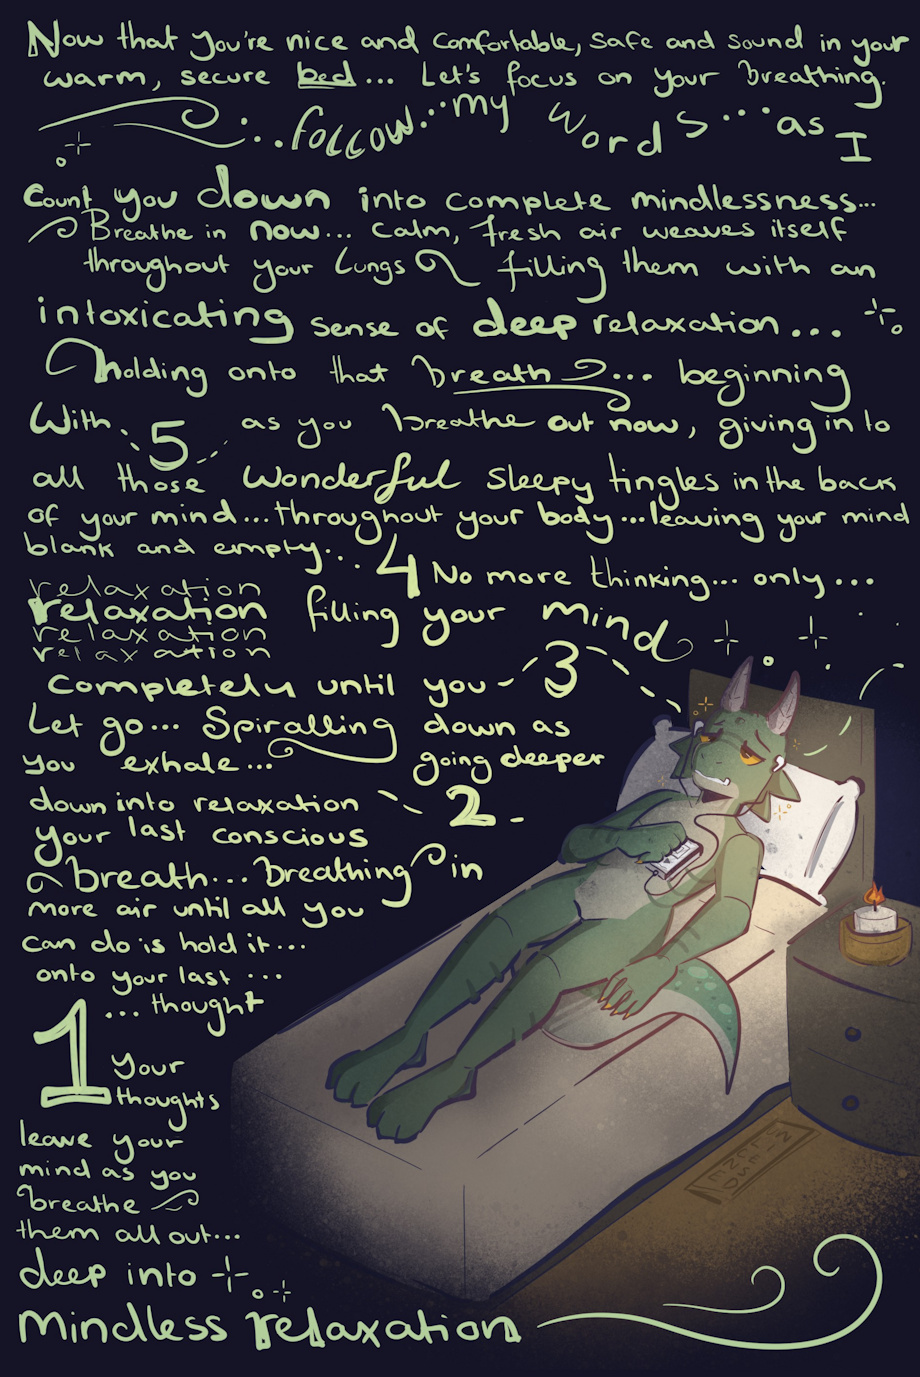 Now that you're nice and comfortable, safe and sound in your
warm, secure bed... Let's focus on your breathing.
...follow...my words...as I
count you down into complete mindlessness...
Breathe in now... calm, fresh air weaves itself
throughout your lungs filling them with an
intoxicating sense of deep relaxation...
holding onto that breath... beginning
With 5 as you breathe out now, giving in to
all those wonderful sleepy tingles in the back
of your mind...throughout your body...leaving your mind
blank and empty... 4 No more thinking... only...
relaxation
relaxation
relaxation
relaxation
filling your mind
completely until you 3
Let go... Spiralling down as
you exhale... going deeper
down into relaxation 2
your last conscious
breath... Breathing in
more air until all you
can do is hold it...
onto your last ...
... thought
1 Your
thoughts
leave your
mind as you
breathe
them all out...
deep into
mindless relaxation